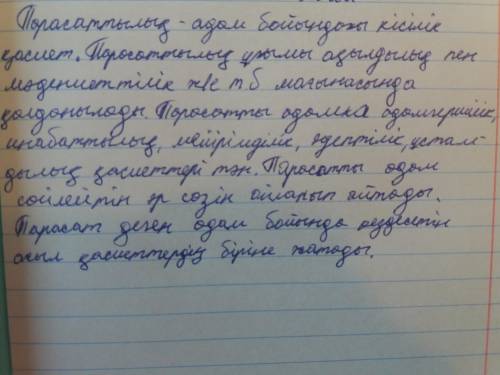 Парасаттылық - адам бойындағы кісілік
қасиет. Парасаттылық ұғымы ақылдылық пен
мәдениеттілік және т.б мағынасында
қолданылады. Парасатты адамға адамгершілік,
инабаттылық, мейірімділік, әдептілік, ұстам-
дылық қасиеттері тән. Парасатты адам
сөйлейтін әр сөзін ойланып айтады.
Парасат деген адам бойында кездесетін
асыл қасиеттердің біріне жатады.